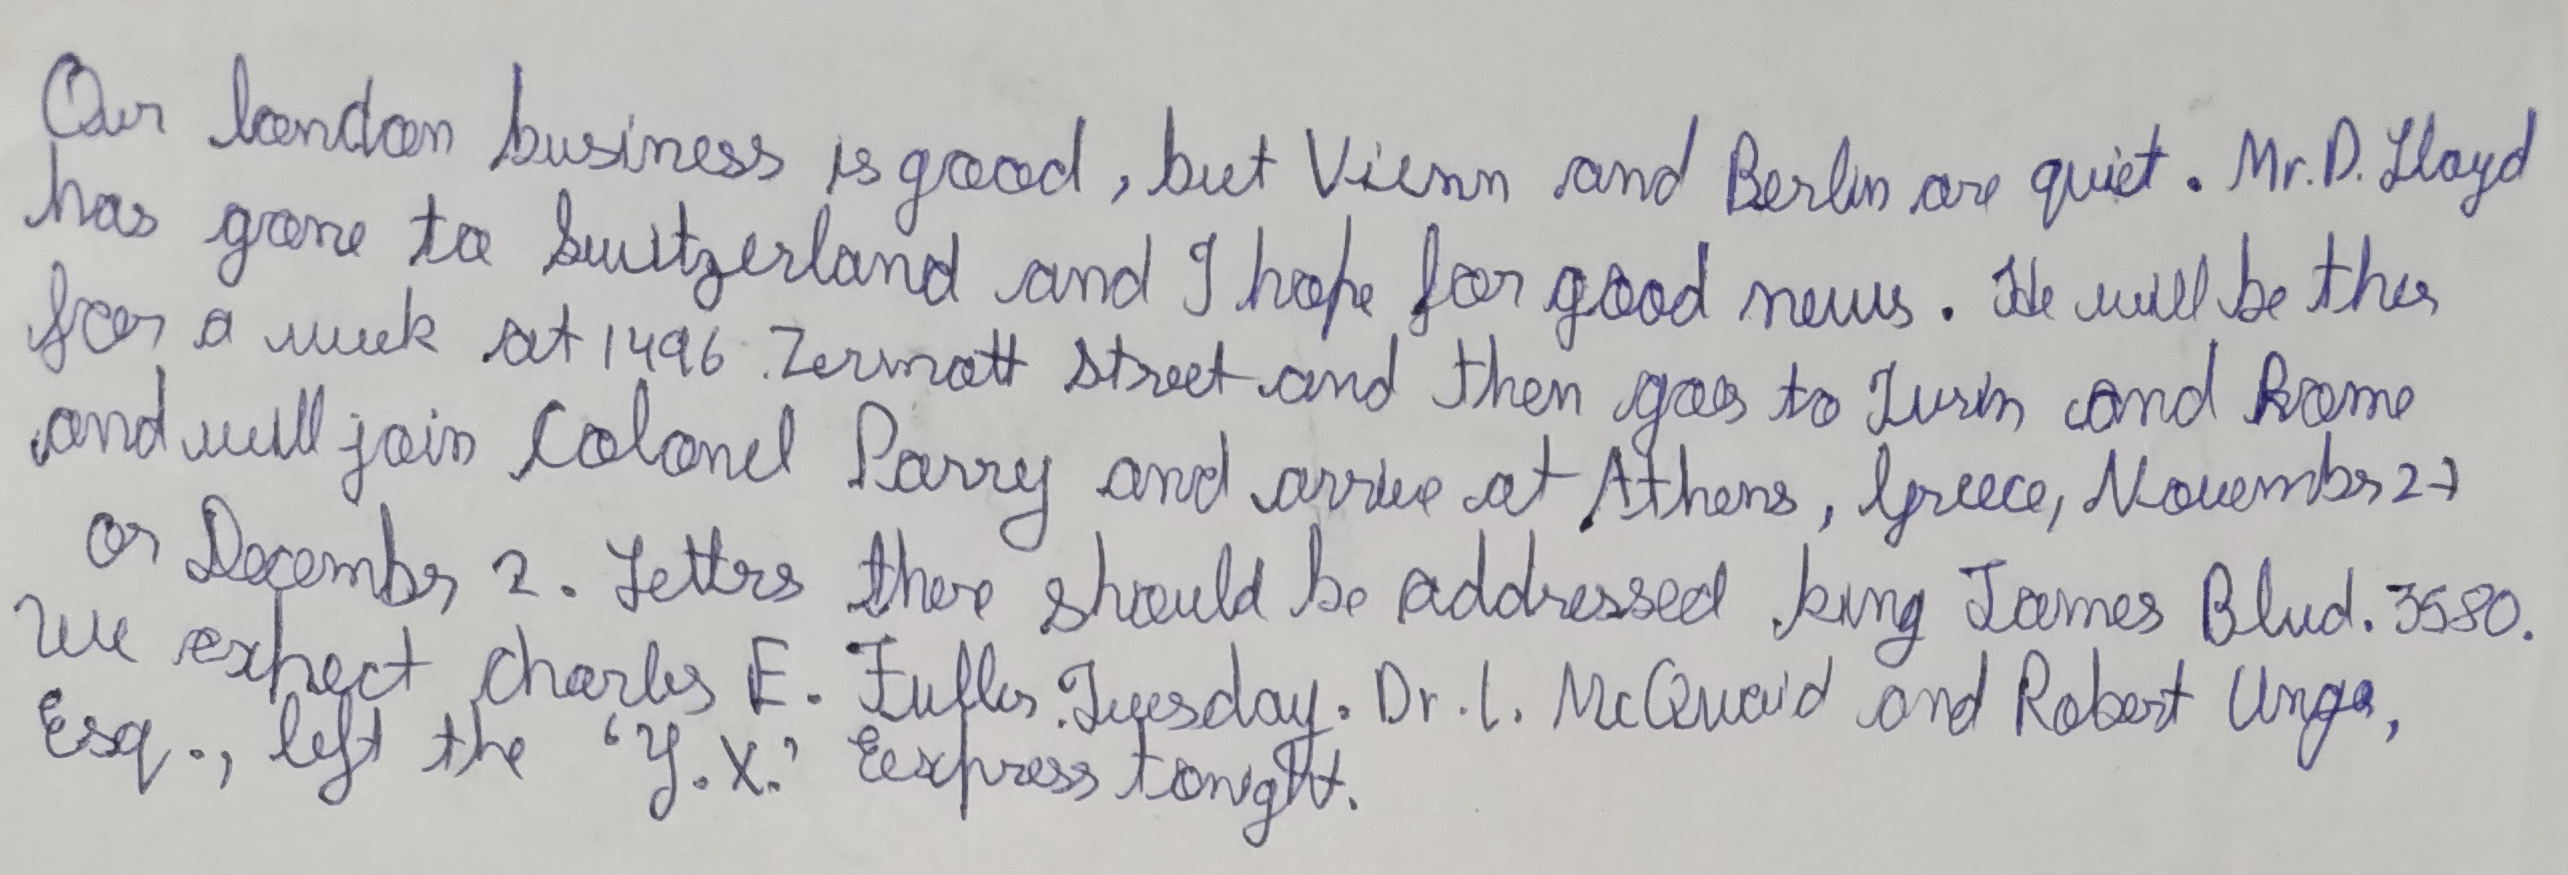 Our london business is good, but Vienn and Berlin are quiet. Mr. D. Lloyd
has gone to Switzerland and I hope for good news. He will be ther
for a week at 1496 Zermott Street and then goes to Turin and Rome
and will join Colonel Parry and arrive at Athens, Greece, Novembr 27
or Decembr 2. Lettrs there should be addressed king James Blvd. 3580.
We expect Charles E. Fuller Tuesday. Dr. L. McQuaid and Robert Unger,
Esq., left the 'Y.X.' Eexpress tonight.